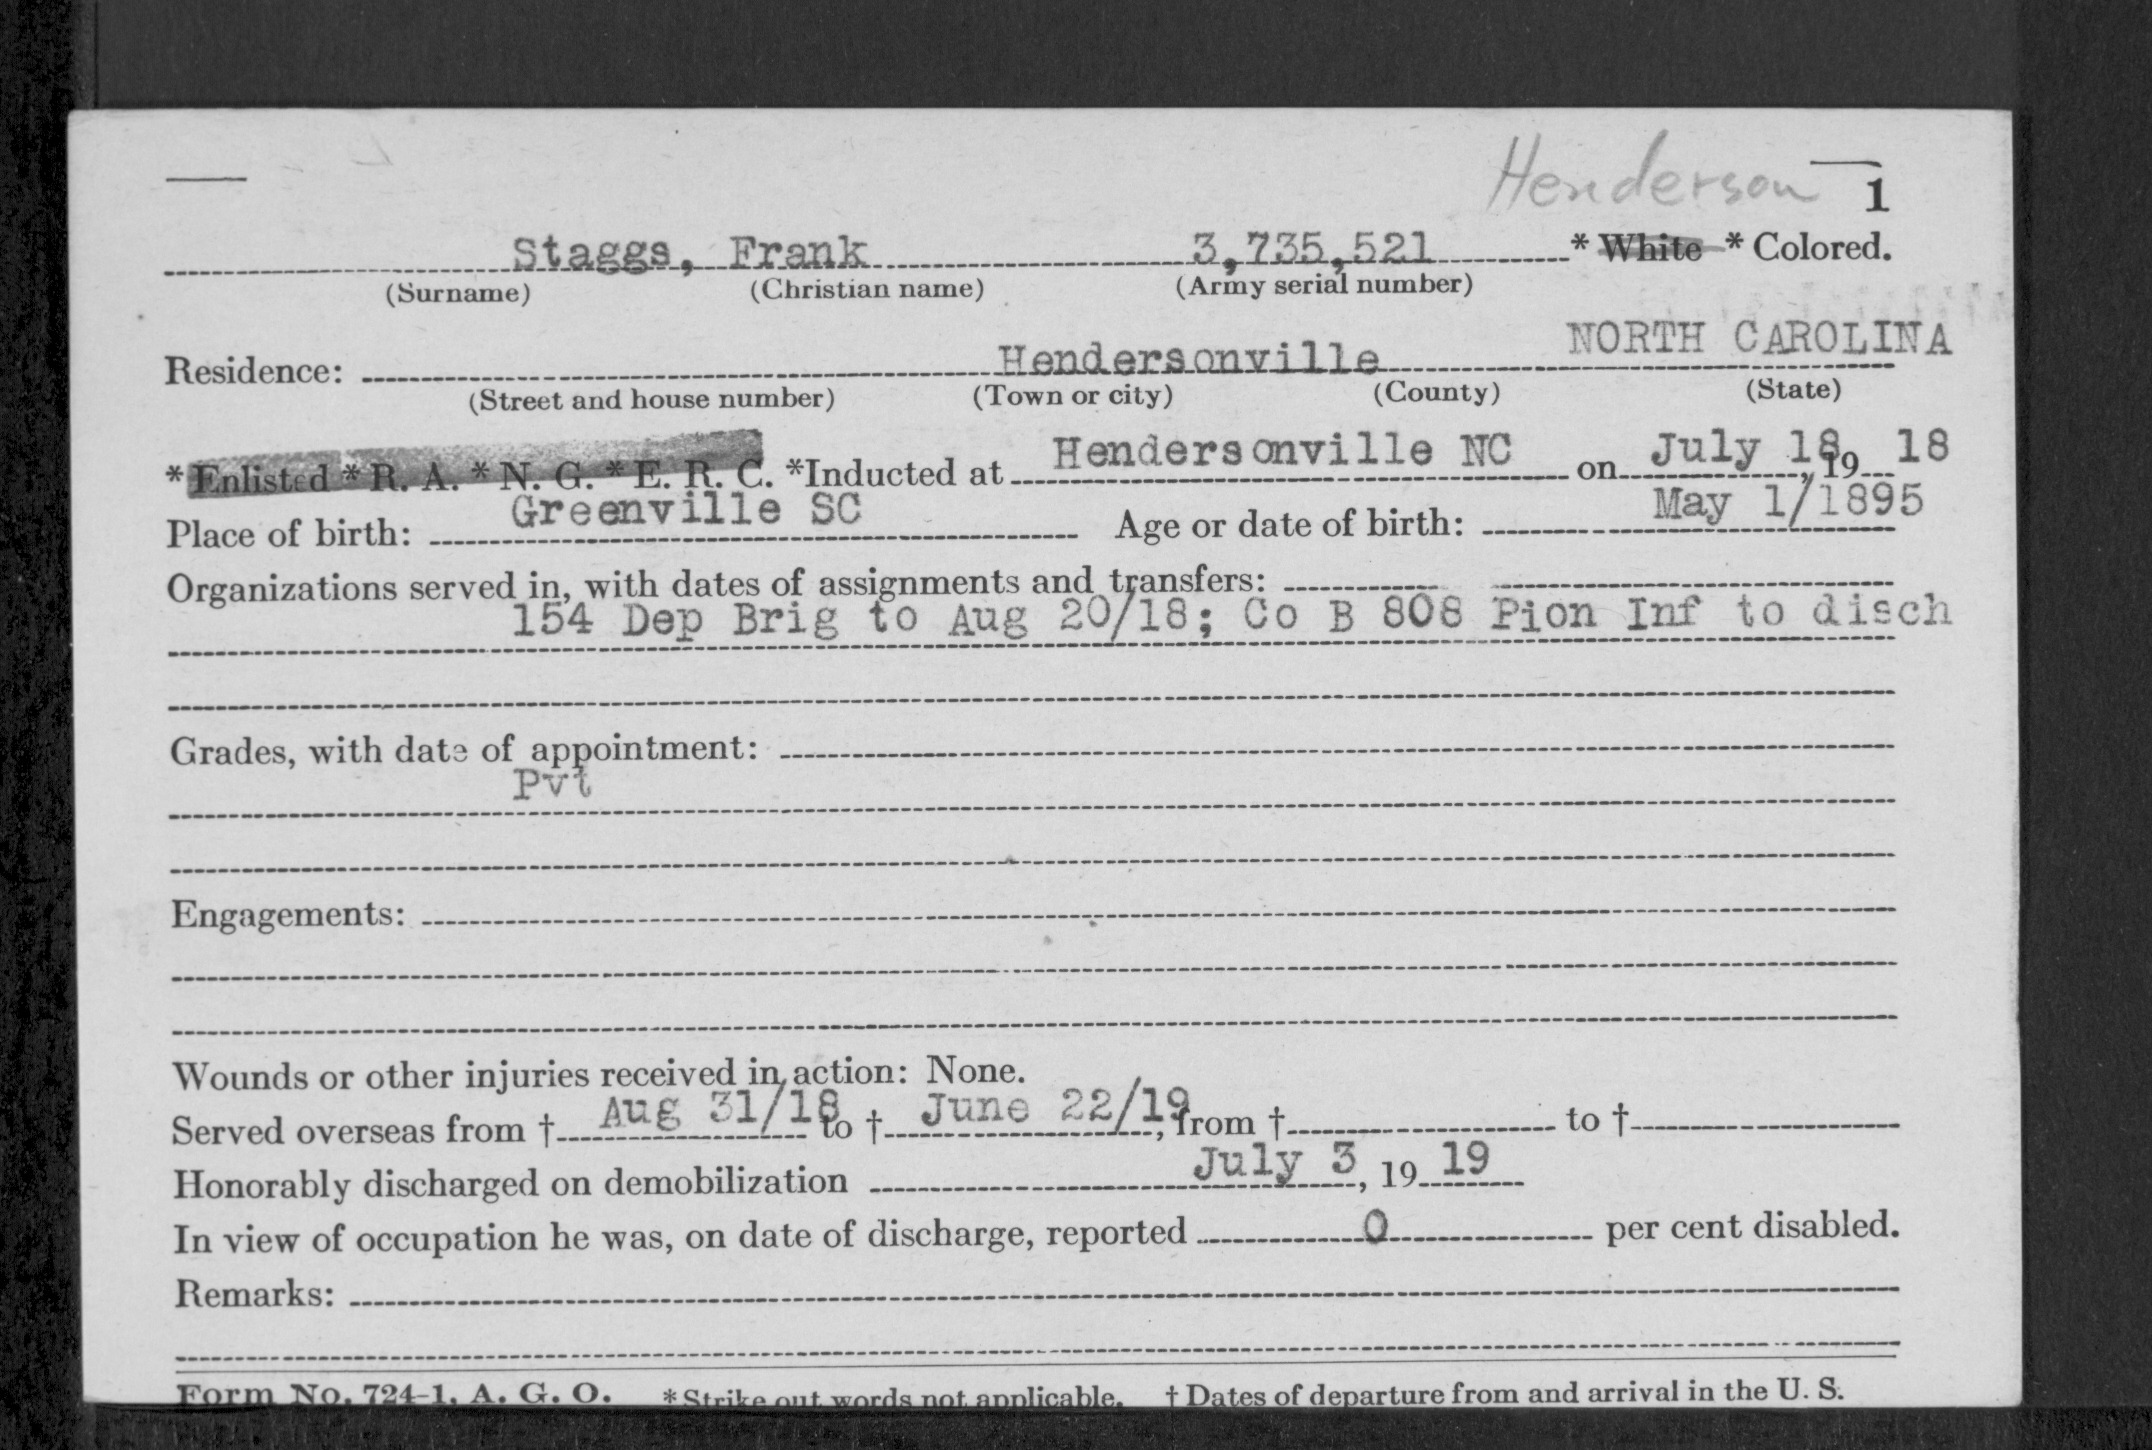 Henderson 1
Staggs, Frank 3,735,521 * White * Colored.
(Surname) (Christian name) (Army serial number)
NORTH CAROLINA
Residence: Hendersonville
(Street and house number) (Town or city) (County) (State)
* Enlisted * R. A. * N. G. * E. R. C. *Inducted at Hendersonville NC on July 18, 19 18
Place of birth: Greenville SC Age or date of birth: May 1/1895
Organizations served in, with dates of assignments and transfers:
154 Dep Brig to Aug 20/18; Co B 808 Pion Inf to disch
Grades, with date of appointment:
Pvt
Engagements:
Wounds or other injuries received in action: None.
Served overseas from † Aug 31/18 to † June 22/19, from † to †
Honorably discharged on demobilization July 3, 19 19
In view of occupation he was, on date of discharge, reported 0 per cent disabled.
Remarks:
Form No. 724-1, A. G. O. * Strike out words not applicable. † Dates of departure from and arrival in the U. S.